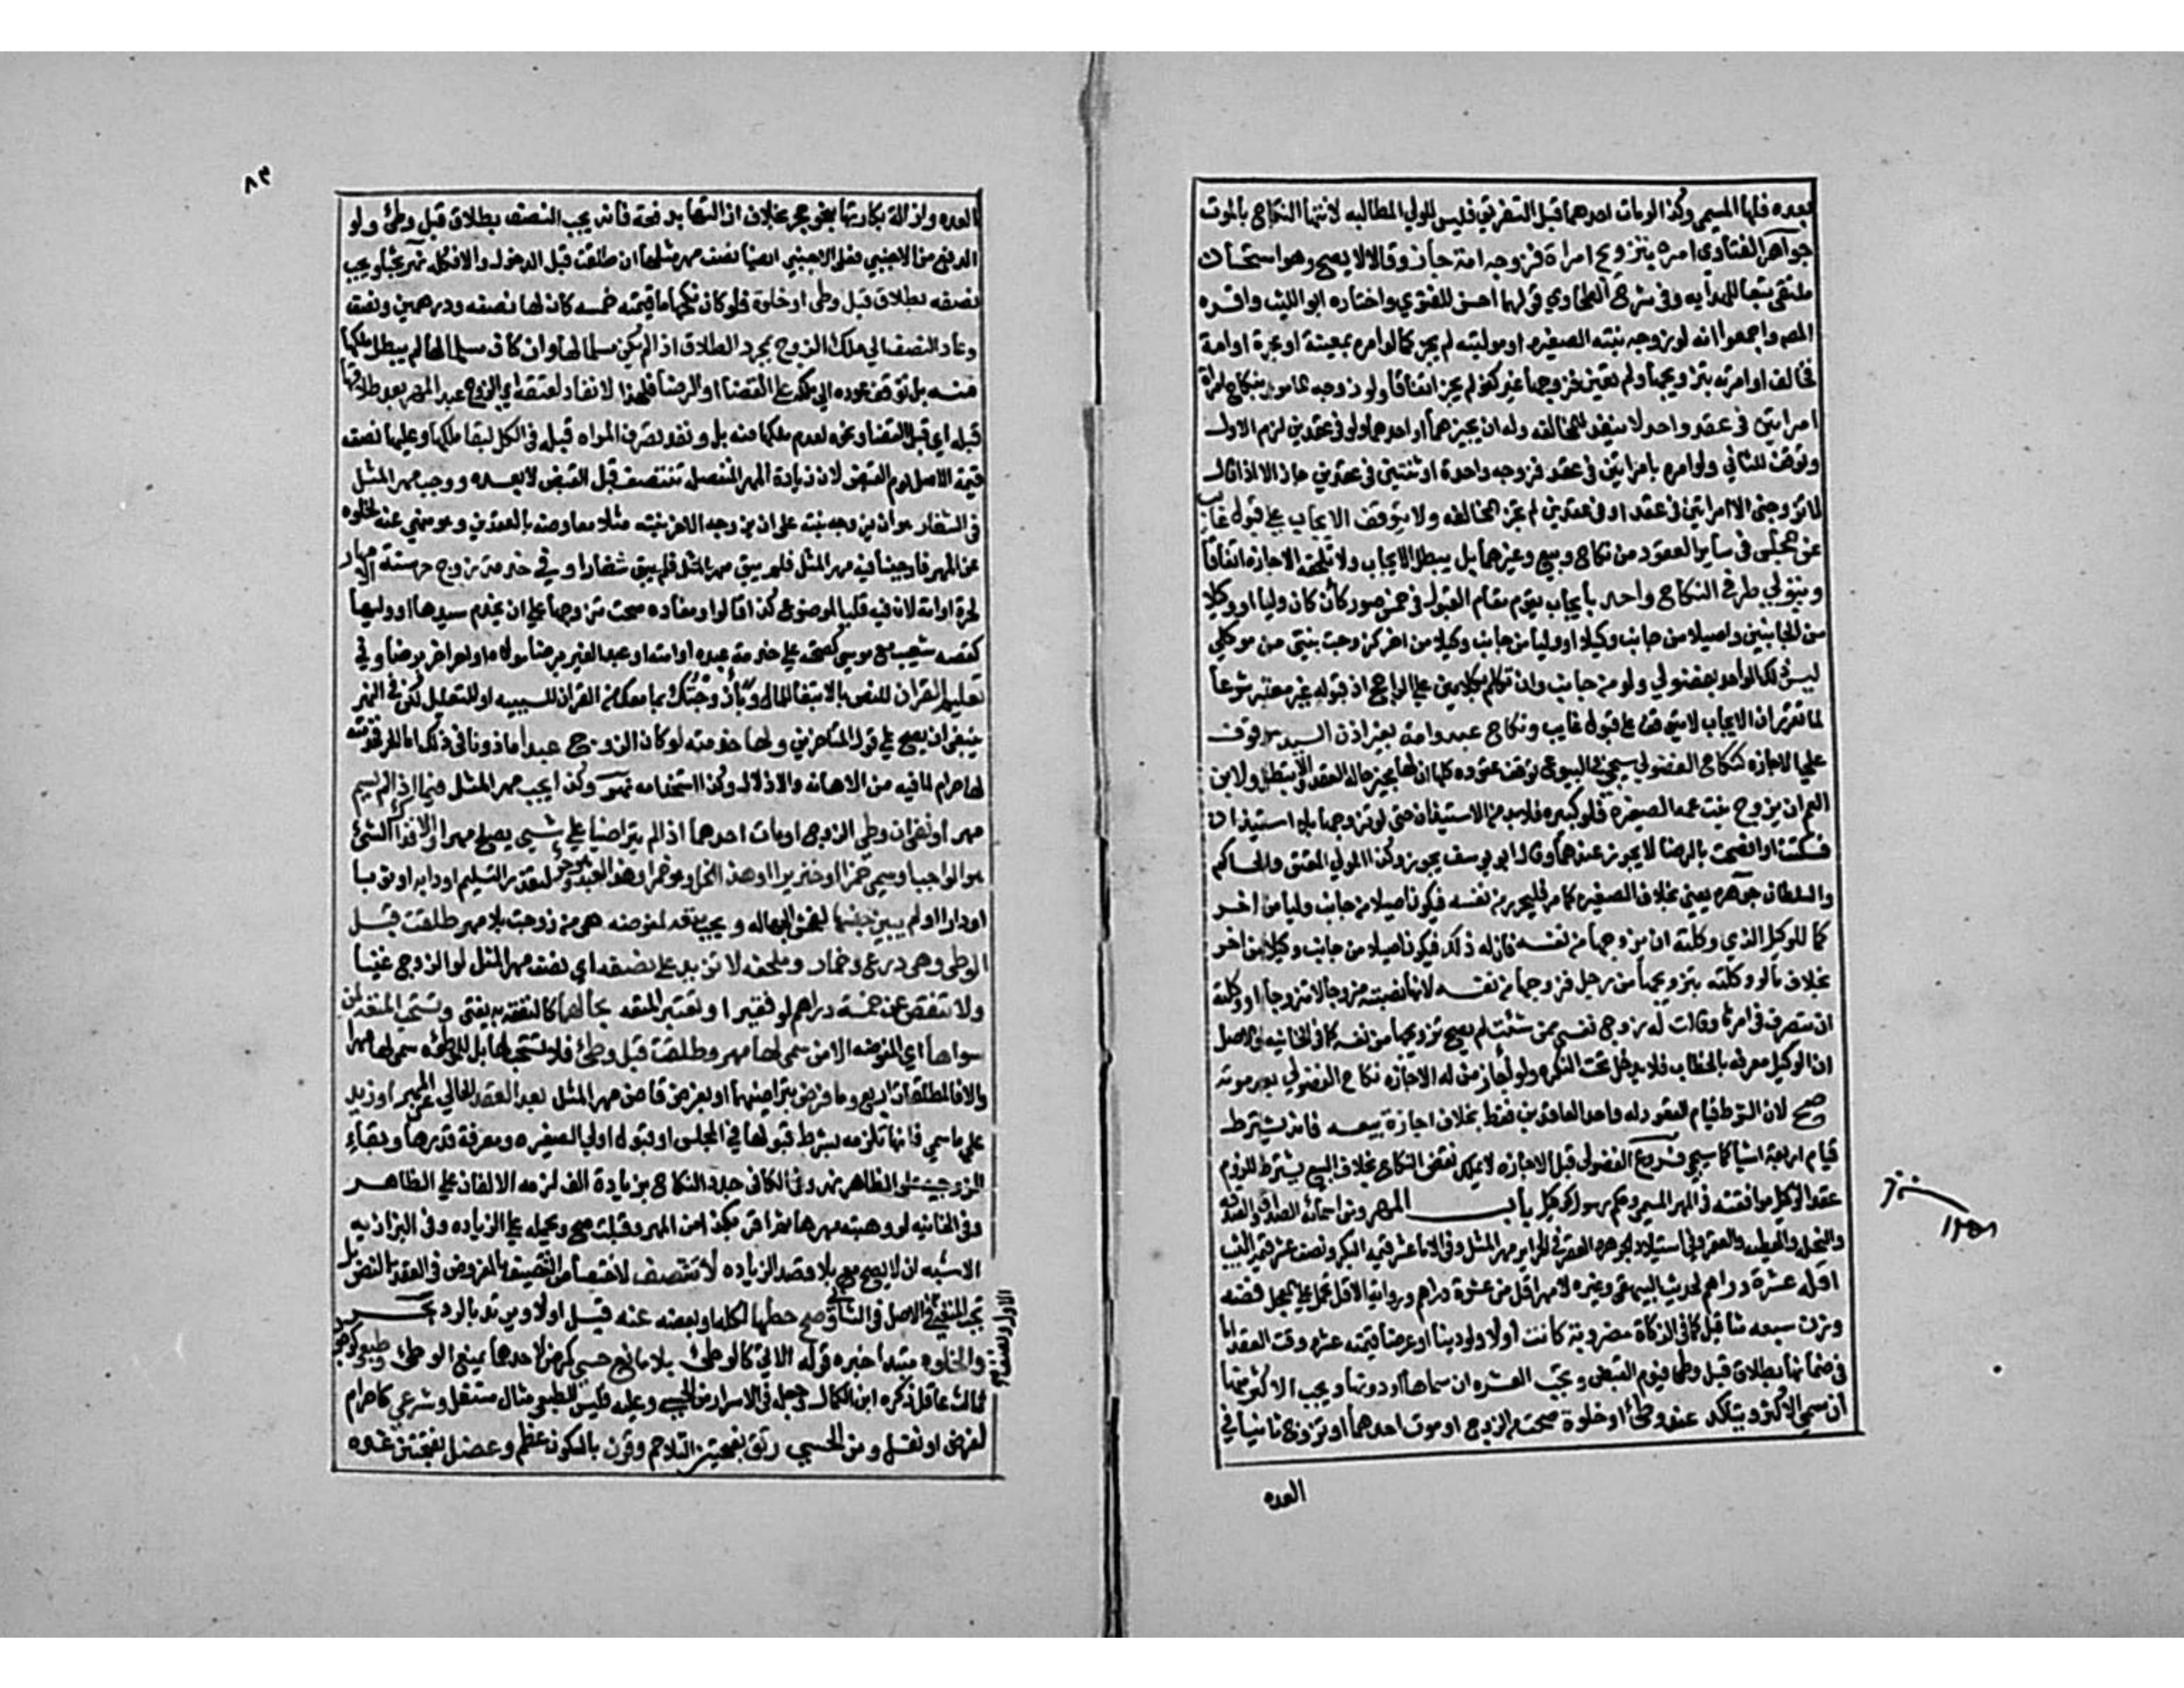 بعده فلها المسمي وكذا لو مات احدهما قبل التفريق فليس للولي المطالبه لانتها النكاح بالموت
جواهر الفتاوى امره بتزويج امراة فزوجه امة جاز وقالا لا يصح وهو استحسان
ملتقى تبعا للهدايه وفى شرح الطحاوي قولهما احسن للفتوي واختاره ابو الليث واقره
المص واجمعوا انه لو زوجه بنته الصغيره او موليته لم يجز كما لو امره بمعينة او بحرة او امة
فخالف او امرته بتزويجها ولم تعين فزوجها غير كفو لم يجز اتفاقا ولو زوجه المامور بنكاح امراة
امراتين فى عقد واحد لا ينفذ للمخالفه وله ان يجيزهما او احدهما ولو فى عقدين لزم الاول
وتوقف الثاني ولو امره بامراتين فى عقد فزوجه واحدة او ثنتين فى عقدين جاز الا اذا قال
لا تزوجنى الا امراتين فى عقد او فى عقدين لم تجز المخالفه ولا يتوقف الايجاب على قبول غايب
عن المجلس فى ساير العقود من نكاح وبيع وغيرهما بل يبطل الايجاب ولا تلحقه الاجازه اتفاقا
ويتولي طرفي النكاح واحد بايجاب يقوم مقام القبول فى خمس صور كأن كان وليا او وكيلا
من الجانبين واصيلا من جانب وكيلا او وليا من جانب وكيلا من اخر كزوجت بنتي من موكلي
ليس ذلك الواحد بفضولي ولو من جانب وان تكلم بكلامين على الراجح اذ قبوله غير معتبر شرعا
لما تقرر ان الايجاب لا يتوقف على قبول غايب ونكاح عبد وامة بغير اذن السيد موقوف
علي الاجازه كنكاح الفضولي سيجي فى البيوع توقف عقوده كلها ان لها مجيز حالة العقد والا تبطل ولابن
العم ان يزوج بنت عمه الصغيره فلو كبيره فلا بد من الاستيذان حتى لو تزوجها بلا استيذان
فسكتت او افصحت بالرضا لا يجوز عندهما وقال ابو يوسف يجوز وكذا المولي المعتق والحاكم
والسلطان جوهره يعني بخلاف الصغيره كما مر فليحرر من نفسه فيكون اصيلا من جانب وليا من اخر
كما للوكيل الذي وكلته ان يزوجها من نفسه فان له ذلك فيكون اصيلا من جانب وكيلا من اخر
بخلاف ما لو وكلته بتزويجها من رجل فزوجها من نفسه لانها نصبته مزوجا لا متزوجا او وكلته
ان يتصرف فى امرها وقالت له زوج نفسي ممن شئت لم يصح تزويجها من نفسه كما فى الخانيه والاصل
ان الوكيل معرفه بالخطاب فلا يدخل تحت النكره ولو اجاز من له الاجازه نكاح الفضولي بعد موته
صح لان الشرط قيام المعقود له واحد العاقدين فقط بخلاف اجازة بيعه فانه يشترط
قيام اربعة اشيا كما سيجي فروع الفضولى قبل الاجازه لا يملك نقض النكاح بخلاف البيع يشترط للزوم
عقد الوكيل موافقته فى المهر المسمي وحكم رسول كوكيل باب المهر ومن اسمائه الصداق والصدقه
والنحله والعطيه والعقر وفى استيلاد الجوهره العقر فى الحراير مهر المثل وفى الاما عشر قيمة البكر ونصف عشر قيمة الثيب
اقله عشرة دراهم لحديث البيهقي وغيره لا مهر اقل من عشرة دراهم ورواية الاقل تحمل على المعجل فضه
وزن سبعه مثاقيل كما فى الزكاة مضروبة كانت اولا ولو دينا او عرضا قيمته عشره وقت العقد اما
فى ضمانها بطلاق قبل وطي فيوم القبض وتجب العشره ان سماها او دونها ويجب الاكثر منها
ان سمي الاكثر ويتاكد عند وطئ او خلوة صحت من الزوج او موت احدهما او تزوج ثانيا في
العده
٨٣
العده وازالة بكارتها بنحو حجر بخلاف ازالتها بدفعة فانه يجب النصف بطلاق قبل وطئ ولو
الدفع من الاجنبي فعلى الاجنبي ايضا نصف مهر مثلها ان طلقت قبل الدخول والا فكله نهر بحثا ويجب
نصفه بطلاق قبل وطى او خلوة فلو كان نكحها ما قيمته خمسه كان لها نصفه ودرهمين ونصف
وعاد النصف الي ملك الزوج بمجرد الطلاق اذا لم يكن مسلما لها وان كان مسلما لها لم يبطل ملكها
منه بل توقف عوده الى ملكه على القضا او الرضا فلهذا لا نفاد لعتقه اي الزوج عبد المهر بعد طلاقها
قبله اي قبل القضا ونحوه لعدم ملكها منه بل ونفذ تصرف المراه قبله فى الكل لبقا ملكها وعليها نصف
قيمة الاصل يوم القبض لان زيادة المهر المنفصل تتنصف قبل القبض لا بعده ووجب مهر المثل
فى الشغار هو ان يزوجه بنته على ان يزوجه الاخر بنته مثلا معاوضه بالعقدين وهو منهي عنه لخلوه
عن المهر فاوجبنا فيه مهر المثل فلم يبق شغارا وفي خدمة زوج حر سنة للامهار
لحرة او امة لان فيه قلب الموضوع كذا قالوا ومفاده صحت تزوجها على ان يخدم سيدها او وليها
كقصه شعيب مع موسي كصحته على خدمة عبده او امته او عبد الغير برضا مولاه او حر اخر برضاه وفي
تعليم القران للنص بالابتغا بالمال وباء زوجتك بما معك من القران للسببيه او للتعليل لكن فى النهر
ينبغى ان يصح على قول المتاخرين ولها خدمته لو كان الزوج عبدا ماذونا فى ذلك اما الحر فخدمته
لها حرام لما فيه من الاهانه والاذلال وكذا استخدامه نهر وكذا يجب مهر المثل فيما اذا لم يسم
مهر او نفى ان وطي الزوج او مات احدهما اذا لم يتراضيا على شيي يصلح مهرا والا فذلك الشئ
هو الواجب او سمي خمرا او خنزيرا او هذا الخل وهو خمر او هذا العبد وهو حر لتعذر التسليم او دابه او ثوبا
او دارا او لم يبين جنسها لفحش الجهاله وتجب متعه لمفوضه هى من زوجت بلا مهر طلقت قبل
الوطى وهى درع وخمار وملحفه لا تزيد على نصفه اي نصف مهر المثل لو الزوج غنيا
ولا تنقص عن خمسة دراهم لو فقيرا وتعتبر المتعه بحالهما كالنفقه به يفتى وتستحب المتعه لمن
سواها اي المفوضه الا من سمى لها مهر وطلقت قبل وطئ فلا تستحب لها بل للموطؤه سمى لها مهرا
والا فالمطلقات اربع وما فرض بتراضيهما او بفرض قاض مهر المثل بعد العقد الخالي عن المهر او زيد
على ما سمي فانها تلزمه بشرط قبولها في المجلس او قبول ولي الصغيره ومعرفة قدرها وبقاء
الزوجية على الظاهر نهر وفى الكافى جدد النكاح بزيادة الف لزمه الالفان على الظاهر
وفى الخانيه لو وهبته مهرها ثم اقر بكذا من المهر وقبلت صح ويحمل على الزياده وفى البزازيه
الاشبه ان لا يصح بلا قصد الزياده لا تتنصف لاختصاص التنصيف بالمفروض فى العقد بالنص بل
تجب المتعه فى الاول ونصف
الاصل فى الثانى وصح حطها لكله او بعضه عنه قبل اولا ويرتد بالرد بحر
والخلوه مبتدا خبره قوله الاتي كالوطئ بلا مانع حسي كمرض لاحدهما يمنع الوطئ وطبعي كوجود
ثالث عاقل ذكره ابن الكمال وجعله فى الاسرار من الحسي وعليه فليس للطبعي مثال مستقل وشرعي كاحرام
لفرض او نفل ومن الحسي رتق بفتحتين التلاحم وقرن بالسكون عظم وعضل بفتحتين غده